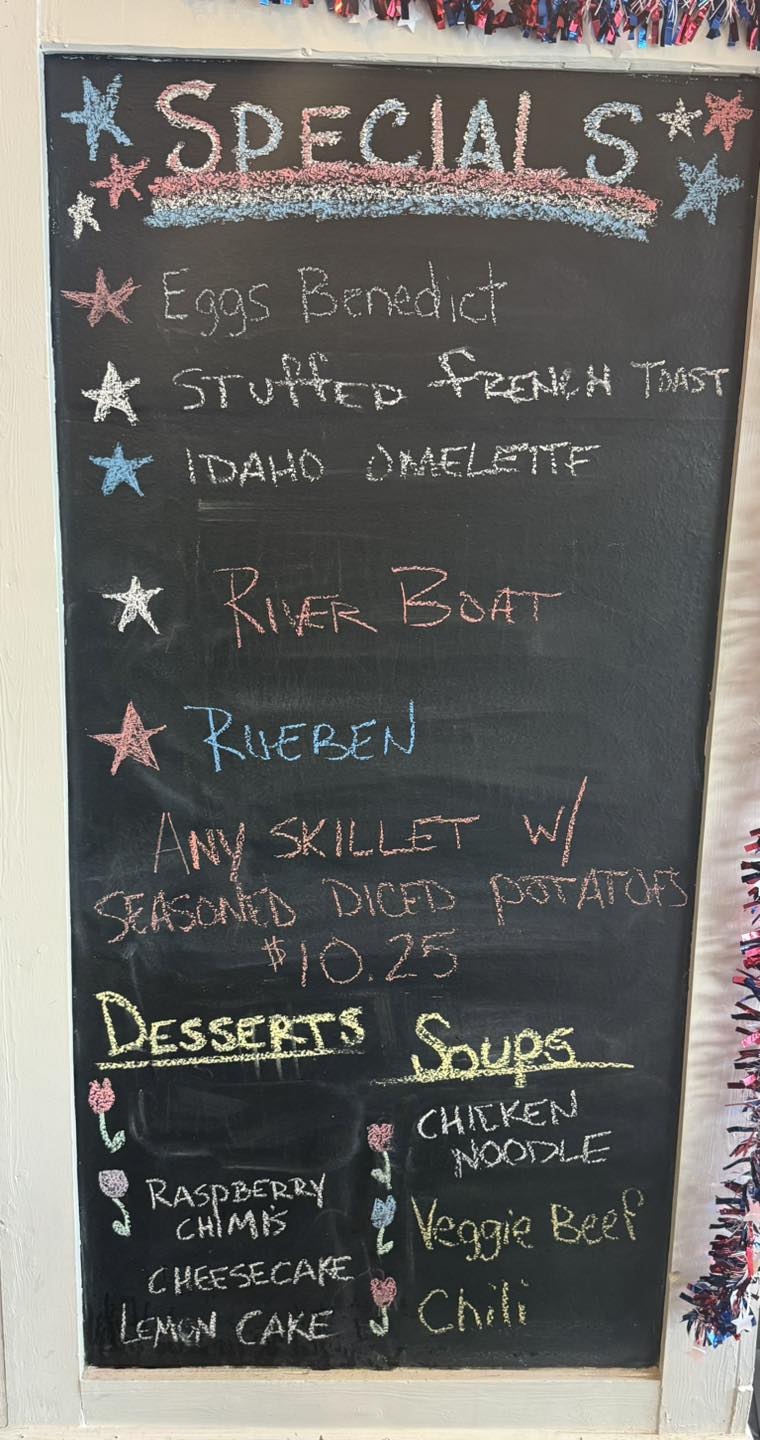 SPECIALS
Eggs Benedict
STUffED fRENCH TOAST
IDAHO OMELETTE
RIVER BOAT
RUEBEN
ANY SKILLET W/
SEASONED DICED POTATOES
$10.25
DESSERTS
RASPBERRY
CHIMIS
CHEESECAKE
LEMON CAKE
SOUPS
CHICKEN
NOODLE
Veggie Beef
Chili